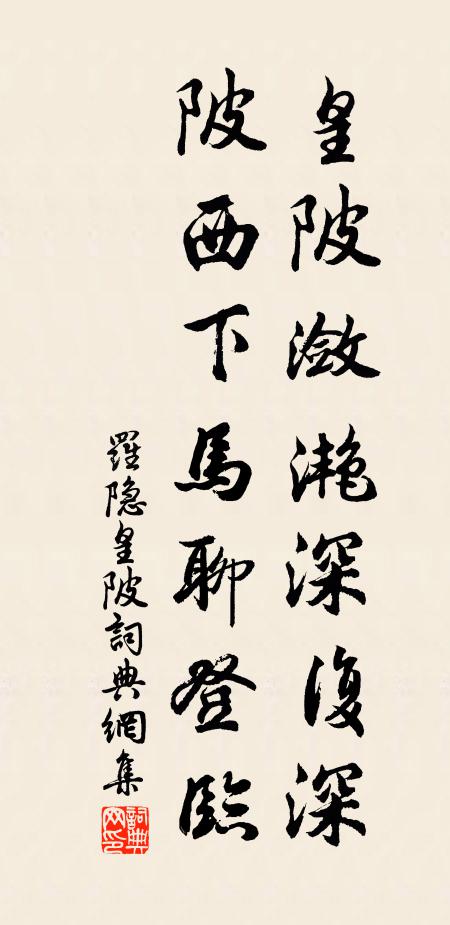 皇陂瀲灧深復深
陂西下馬聊登臨
羅隐皇陂詞典網集
詞典网印